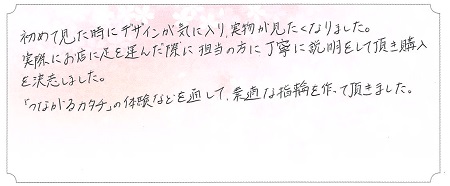 初めて見た時にデザインが気に入り、実物が見たくなりました。
実際にお店に足を運んだ際に担当の方に丁寧に説明をして頂き購入
を決意しました。
「つながるカタチ」の体験などを通して、素適な指輪を作って頂きました。